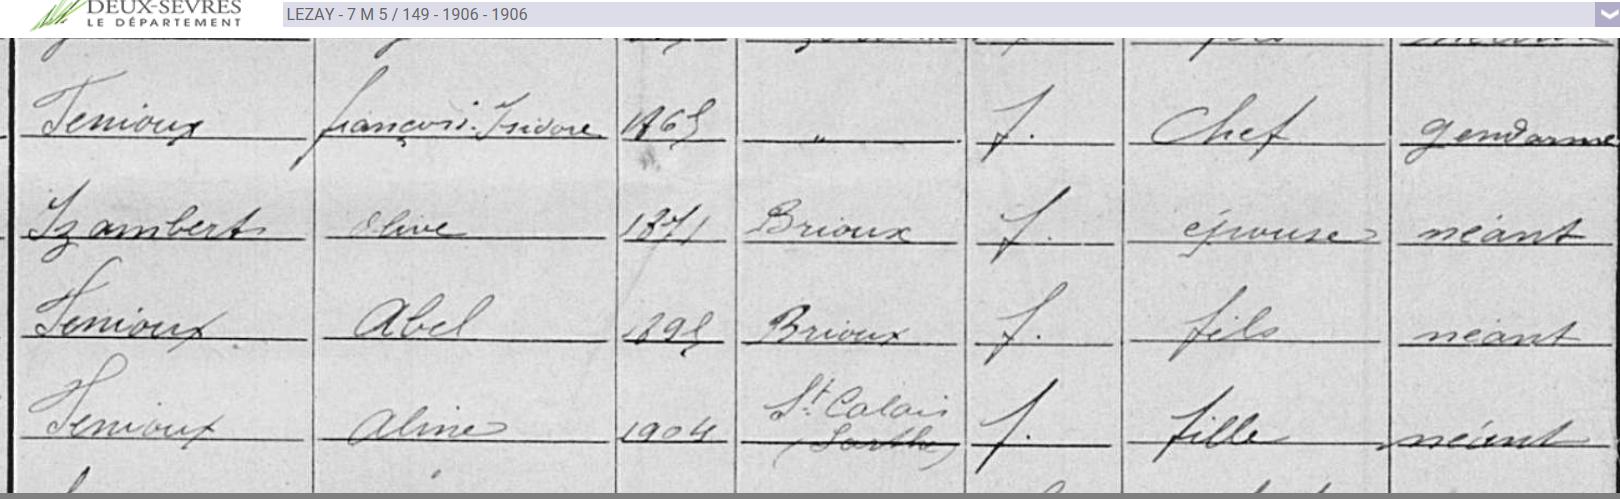 DEUX-SEVRES
LE DÉPARTEMENT
LEZAY - 7 M 5 / 149 - 1906 - 1906
Tenioux françois-Isidore 1865 " f. Chef gendarme
Izambert Olive 1871 Brioux f. épouse néant
Tenioux Abel 1895 Brioux f. fils néant
Tenioux Aline 1904 St Calais f. fille néant
(Sarthe)